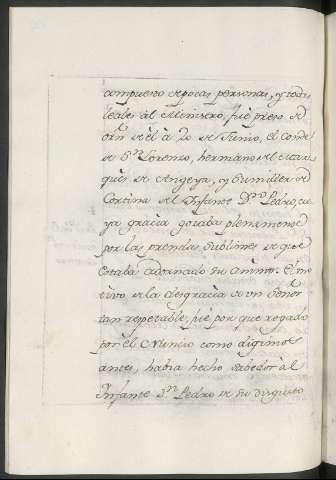 compuerto de pocas personas, y todas
leales al Ministro, fué preso de
orñ. de él à 20 de Junio, el Conde
de Sn. Lorenzo, hermano del Mar-
qués de Angeja, y Sumiller de
Cortina del Infante Dn. Pedro, cu-
ya gracia gozaba plenamente
por las prendas sublimes de que
estaba adornado su animo. El mo-
tivo de la desgracia de un Señor
tan respetable, fué por que rogado
por el Nuncio como digimos
antes, habia hecho sabedor al
Infante Dn. Pedro de su disgusto